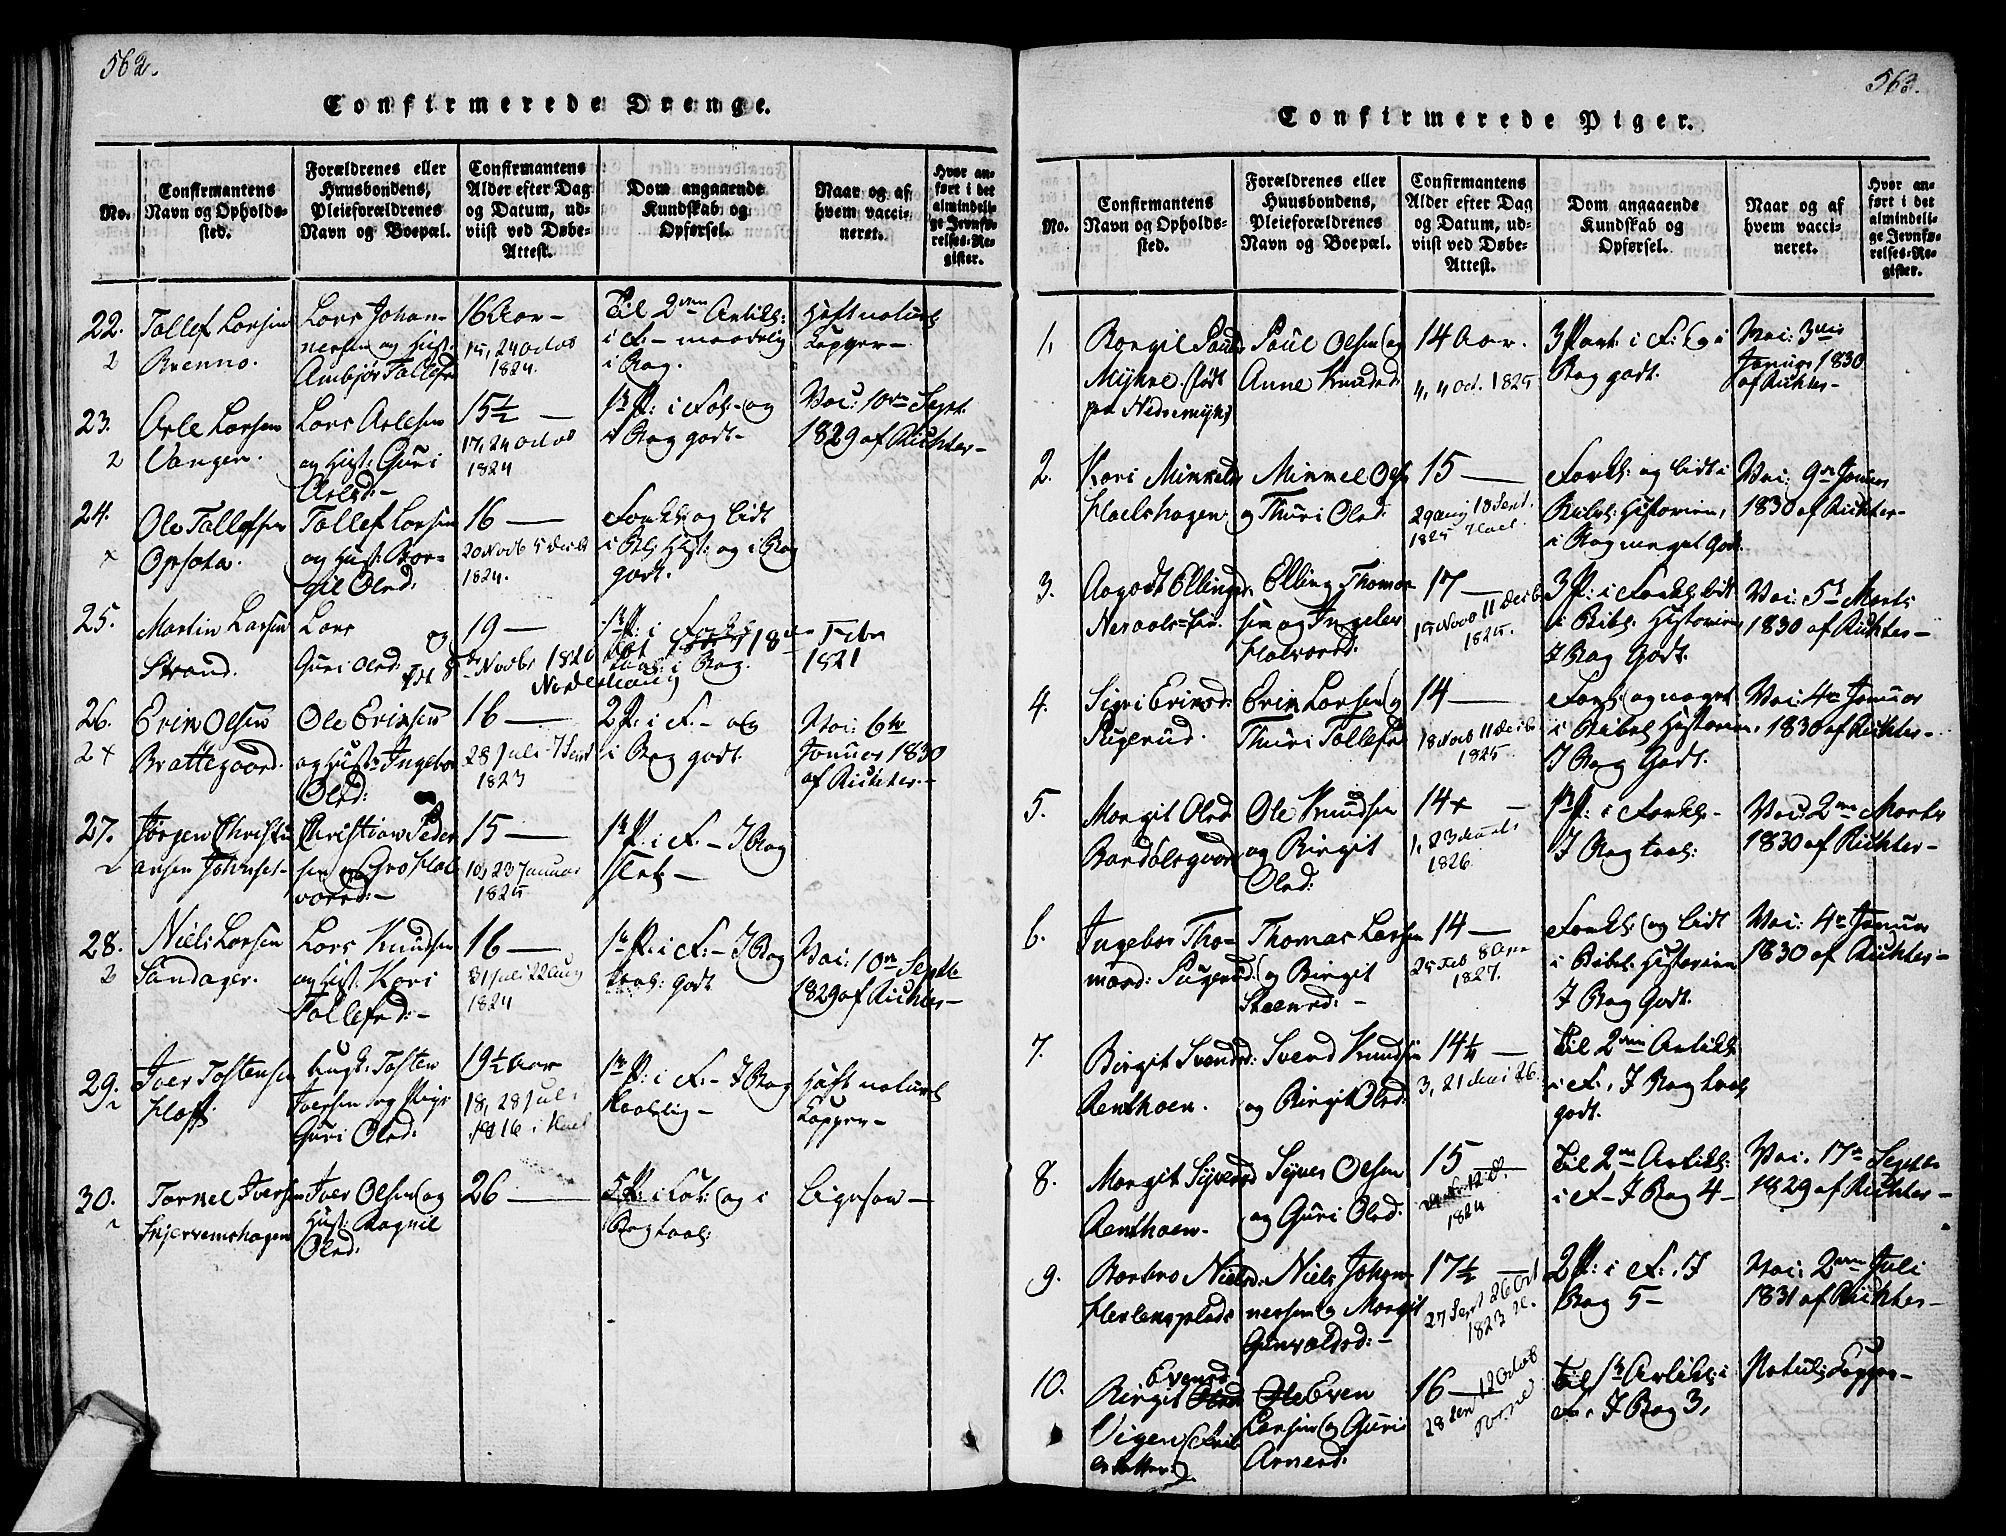 562.
Confirmerede Drenge.
No.
Confirmantens
Navn og Opholds-
sted.
Forældrenes eller
Huusbondens,
Pleieforældrenes
Navn og Boepæl.
Confirmantens
Alder efter Dag
og Datum, ud-
viist ved Døbe-
Attest.
Dom angaaende
Kundskab og
Opførsel.
Naar og af
hvem vacci-
neret.
Hvor an-
ført i det
almindeli-
ge Jevnfø-
relses-Re-
gister.
22.
2
Tollef Larsen
Brenno.
Lars Johan-
nesen og Hust:
Ambjør Tollefsd
16 Aar –
15, 24 Octob
1824.
Til 2den Artikl:
i F. – maadelig
i Rag.
Haft naturl
Kopper –
23.
2
Asle Larsen
Vangen.
Lars Aslesen
og Hust: Guri
Aslesd: –
15½ –
17, 24 Octob
1824
1ste P: i Fok: – og
i Rag godt –
Vac: 10de Sept.
1829 af Richter –
24.
x
Ole Tollefsen
Opsata.
Tollef Larsen
og Hust: Bor-
gil Olsd:
16 –
20 Novb 5 Decb
1824.
Forkl: og lidt
i Bibl: Hist: og i Rag
godt.
25.
Martin Larsen
Strand.
Lars
Guri Olsd:
19 –
Novbr 1820
Norderhaug
1ste P: i Forkl:
i Rag.
18de Febr
1821
26.
2 x
Erik Olsen
Brattegaard.
Ole Eriksen
og Hust: Ingebor
Olsd:
16 –
28 Juli 7 Sept
1823
2 P: i F. – og
i Rag godt.
Vac: 6te
Januar 1830
af Richter. –
27.
2
Jørgen Christi
ansen Johnsel-
Christian Peder
sen og Gro Hal
vorsd: –
15 –
10, 23 Januar
1825
1ste P: i F. – I Rag
slet –
28.
2
Niels Larsen
Sandager.
Lars Knudsen
og Hust: Kari
Tollefsd: –
16 –
31 Juli 22 Aug
1824
1ste P: i F. – I Rag
taal: godt
Vac: 10de Septb
1829 af Richter –
29.
2
Iver Tostensen
Hoff.
Tosten
Iversen og Pige
Guri Olsd:
19½ Aar
18, 28 Juli
1816 i Hael
1ste P: i F. – I Rag
taalelig –
Haft naturl
Kopper –
30.
2
Tarnel Iversen
Skjervemshagen
Iver Olsen og
Hust: Ragnil
Olsd:
26 –
5 P: i Fok: og i
Rag taal:
Ligesaa –
563.
Confirmerede Piger.
No.
Confirmantens
Navn og Opholds-
sted.
Forældrenes eller
Huusbondens,
Pleieforældrenes
Navn og Boepæl.
Confirmantens
Alder efter Dag
og Datum, ud-
viist ved Døbe-
Attest.
Dom angaaende
Kundskab og
Opførsel.
Naar og af
hvem vacci-
neret.
Hvor an-
ført i det
almindeli-
ge Jevnfø-
relses-Re-
gister.
1,
Borgil Pauls
Mykne. (født
paa Nedremykne)
Paul Olsen og
Anne Knudsd:
14 Aar.
4, 4 Oct. 1825
3 Part: i F: og i
Rag godt.
Vac: 3die
Januar 1830
af Richter –
2.
Kari Mikkelsd
Haelshagen.
Mikkel Ols
og Thuri Olsd:
15 –
29 Aug 18 Sept.
1825 Hael.
Forkl: og lidt i
Bibl: Historien,
i Rag meget godt.
Vac: 9de Januar
1830 af Richter –
3.
Aagodt Ellings
Neraals-Eie.
Elling Thomas
sen og Ingebor
Halvorsd:
17 –
15 Novb 11 Decb
1825.
3 P: i Forkl: lidt
i Bibl: Historien
I Rag Godt.
Vac: 5te Marts
1830 af Richter –
4.
Sigri Eriksd:
Sugerud.
Erik Larsen og
Thuri Tollefsd
14 –
18 Novb 11 Decb
1825.
Forkl: og noget
i Bibel Historien
I Rag Godt.
Vac: 4de Januar
1830 af Richter –
5.
Margit Olsd
Bardølsgaard
Ole Knudsen
og Birgit
Olsd:
14 x –
1, 23 Marts
1826.
1ste P: i Forkl: –
I Rag taal:
Vac: 2den Marts
1830 af Richter –
6.
Ingebor Tho-
masd: Sugerud.
Thomas Larsen
og Birgit
Steensd: –
14 –
25 Feb 8 Apr
1827.
Forkl: og lidt
i Bibel: Historien
I Rag Godt.
Vac: 4de Januar
1830 af Richter –
7.
Birgit Svendsd:
Renthaen.
Svend Knudsen
og Birgit Olsd:
14¼ –
3, 21 Mai 26.
Til 2den Artikl:
i F., I Rag taal:
godt.
8.
Margit Syversd
Renthaen.
Syver Olsen
og Guri Olsd:
15 –
1824
Til 2den Artikl:
i F – I Rag 4 –
Vac: 17de Septb
1829 af Richter –
9.
Barbro Nielsd:
Herlensplads
Niels Johan-
nesen og Margit
Gunvaldsd: –
17½ –
27 Sept 26 Oct
1823
2 P: i F:, I
Rag 5 –
Vac: 2den Juli
1831 af Richter –
10.
Evensd
Birgit Olsd
Vigen
Ole Even
Larsen og Guri
Arnesd:
16 –
28 Sept 12 Octob
Til 1ste Artikl: i
F., I Rag 3,
Naturl: Kopper –